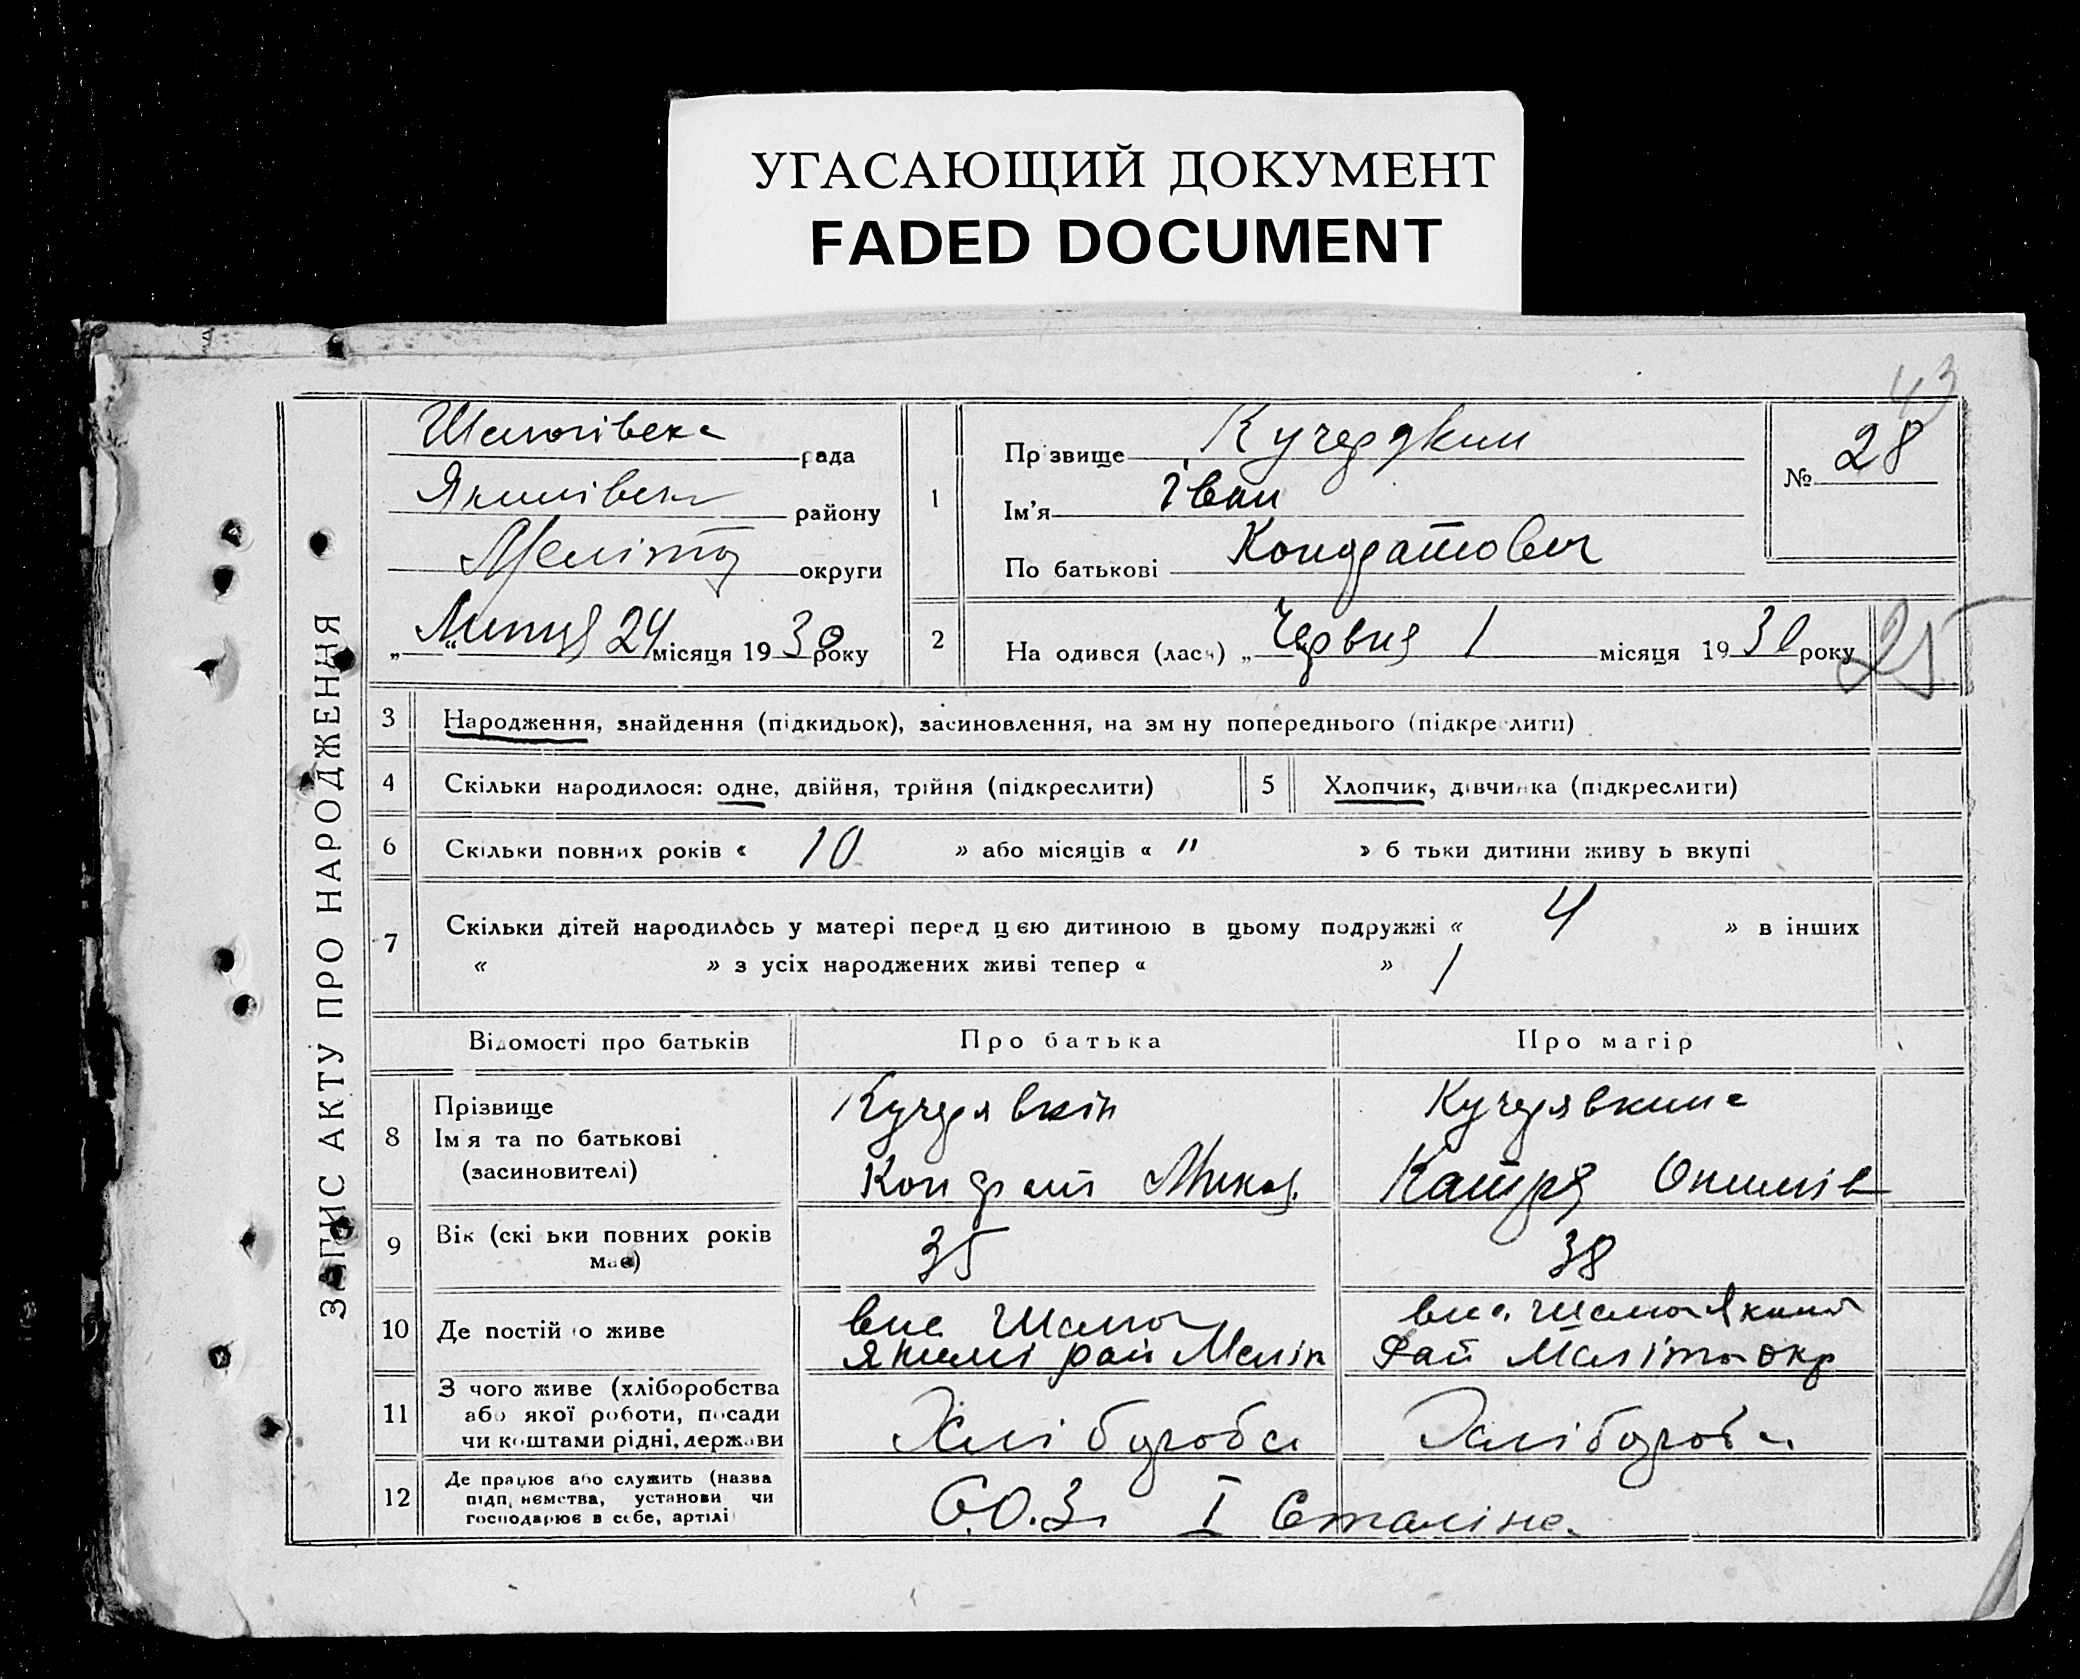 УГАСАЮЩИЙ ДОКУМЕНТ
FADED DOCUMENT
43
ЗАПИС АКТУ ПРО НАРОДЖЕННЯ
рада
Якимівськ району
Меліто округи
„ “ Липця 24 місяця 1930 року
1
Прізвище
Ім'я Іван
По батькові Кондратович
№ 28
2 На одився (лась) „ Червня 1 місяця 1930 року
25
3 Народження, знайдення (підкидьок), засиновлення, на зм ну попереднього (підкре лити)
4 Скільки народилося: одне, двійня, трійня (підкреслити) 5 Хлопчик, дівчинка (підкреслити)
6 Скільки повних років « 10 » або місяців « " » б тьки дитини живу ь вкупі
7 Скільки дітей народилось у матері перед цією дитиною в цьому подружжі « 4 » в інших
« » з усіх народжених живі тепер « » 1
Відомості про батьків Про батька Про матір
8 Прізвище Кучерявкін Кучерявкина
Ім я та по батькові
(засиновителі) Кондрат Микол. Катря
9 Вік (скі ьки повних років має) 35 38
10 Де постій о живе
вис Шамо вис. Шамо Яким
Якимі рай Меліп Рай Меліто окр
11 З чого живе (хліборобства
або якої роботи, посади
чи коштами рідні, держави Хлібороба Хлібороба
12 Де працює або служить (назва
підп. иємства, установи чи
господарює в себе, артілі С.О.З. І Сталіна.